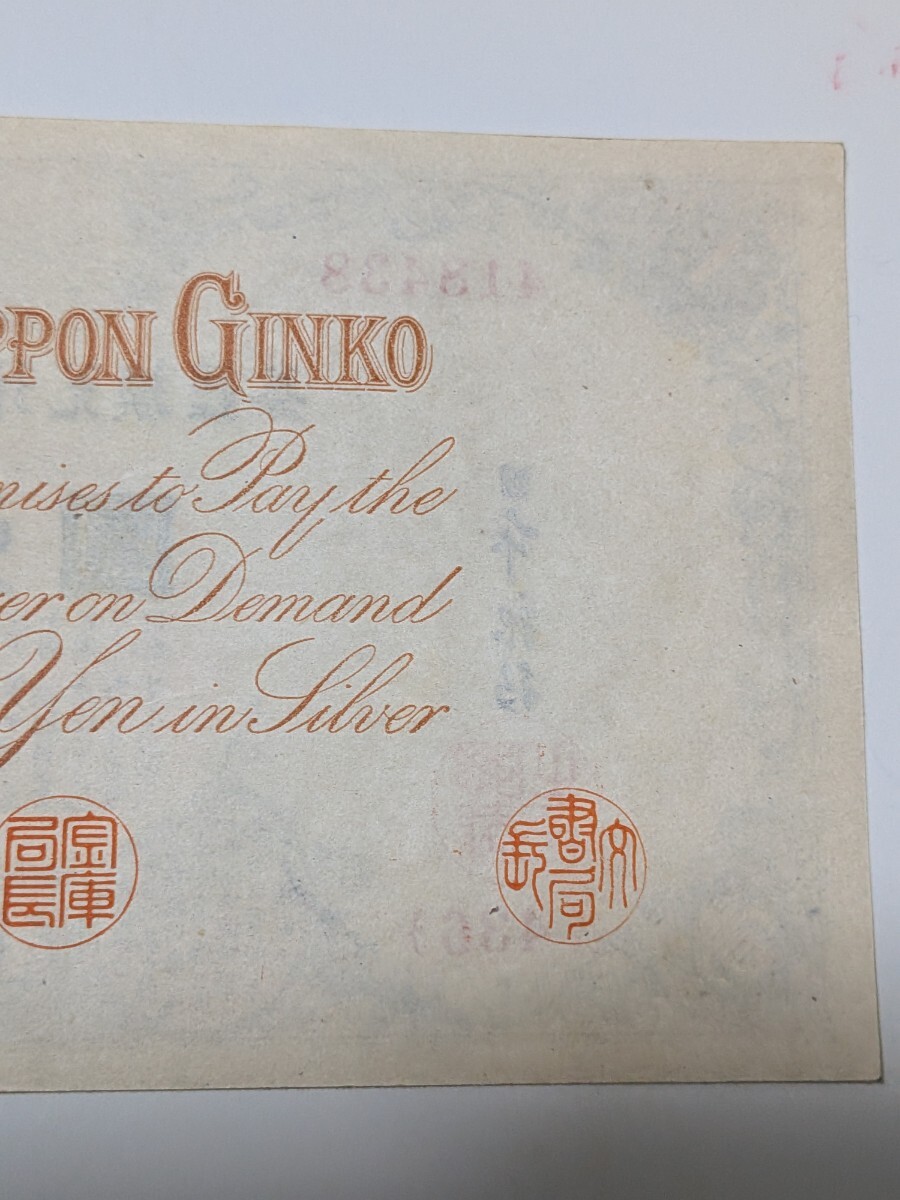 PPON GINKO
mises to Pay the
er on Demand
Yen in Silver
金庫局長
文書局長